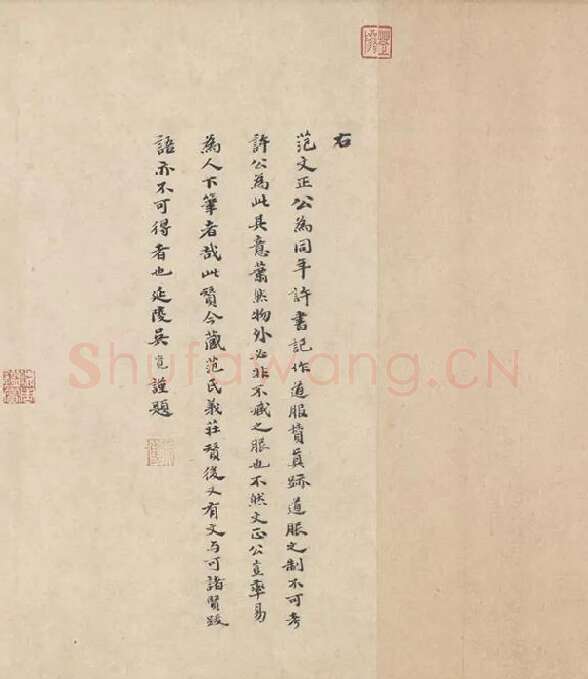 右
范文正公為同年許書記作道服贊真跡道服之制不可考
許公為此其意蕭然物外必非不戚之服也不然文正公豈率易
為人下筆者哉此贊今藏范氏義莊贊後又有文与可諸賢跋
語亦不可得者也延陵吳寬謹題
Shufawang.CN